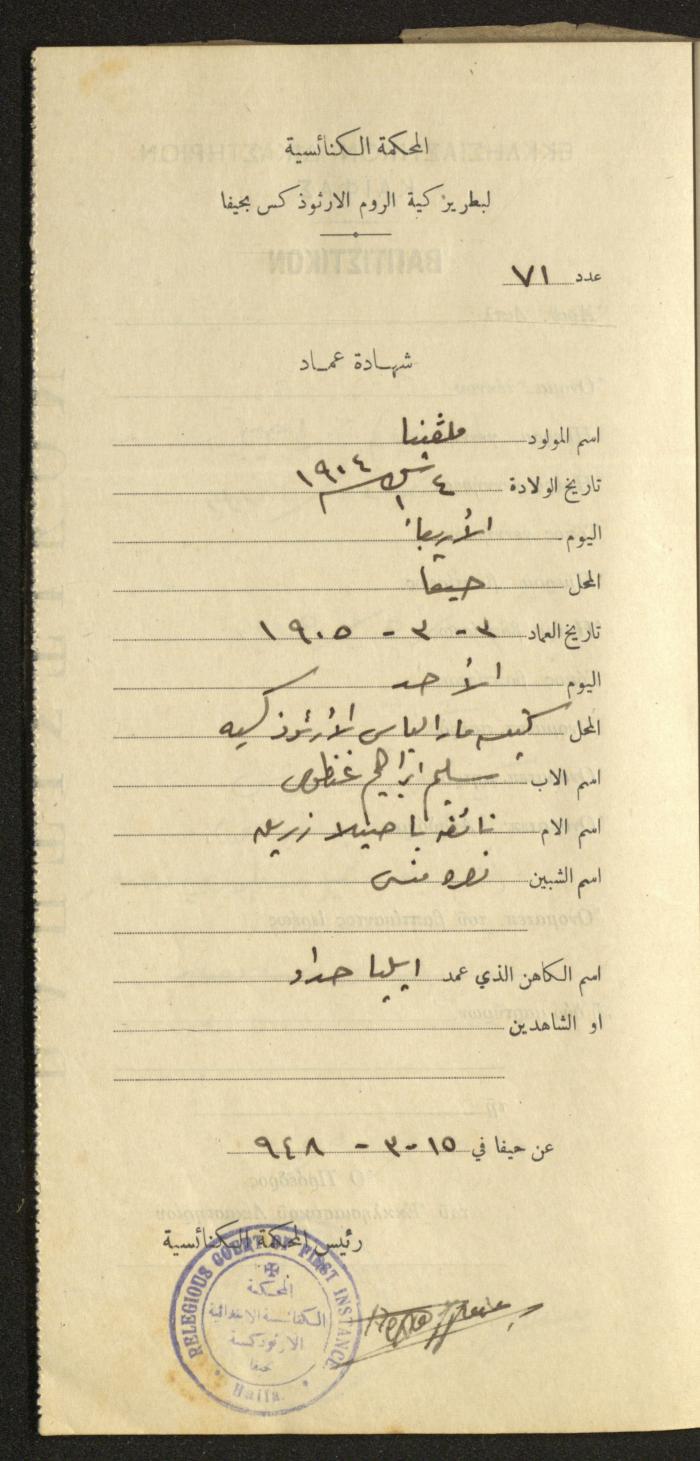 المحكمة الكنائسية
لبطريركية الروم الارثوذكس بحيفا
عدد ٧١
شهادة عماد
اسم المولود ملڤنيا
تاريخ الولادة ٤ ت١ سنة ١٩٠٤
اليوم الأربعاء
المحل حيفا
تاريخ العماد ٣ - ٣ - ١٩٠٥
اليوم الأحد
المحل كنيسة مار الياس الأرثوذكسيه
اسم الاب سليم ابراهيم غنطوس
اسم الام نائفه
اسم الشبين
اسم الكاهن الذي عمد ايليا حداد
او الشاهدين
عن حيفا في ١٥ - ٣ - ٩٤٨
رئيس المحكمة الكنائسية
RELEGIOUS COURT OF FIRST INSTANCE
المحكمة
الكنائسية الابتدائية
الارثوذكسية
حيفا
Haifa.